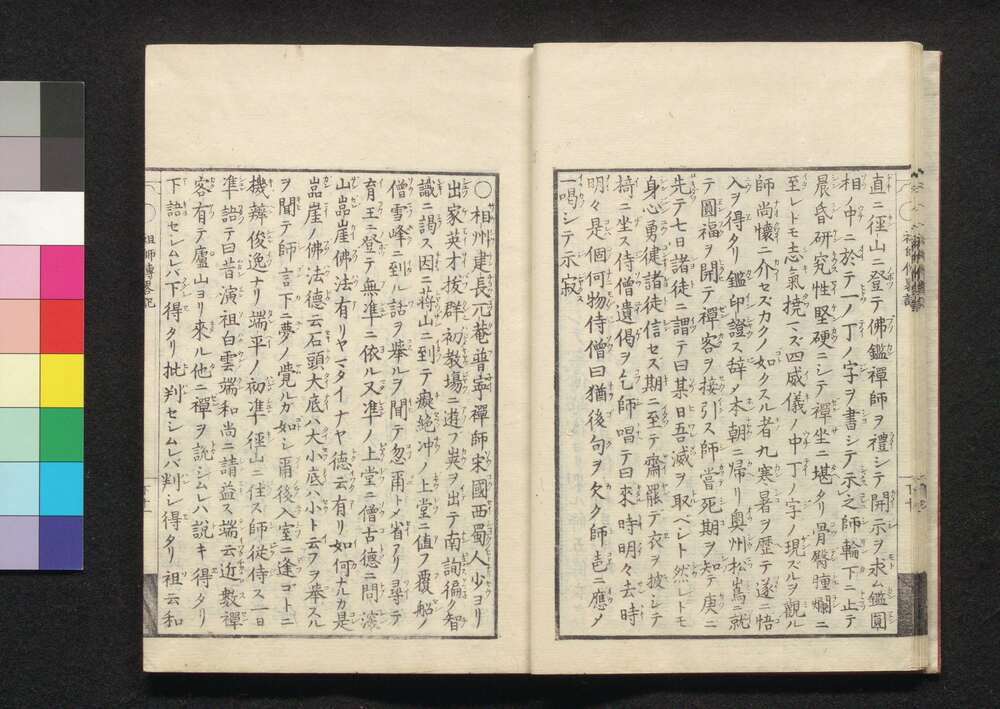 直ニ徑山ニ登テ佛鑑禪師ヲ禮シテ開示ヲ求ム鑑圓
相ノ中ニ於テ一ノ丁ノ字ヲ書シテ示之師輪下ニ止テ
晨昏研究性堅硬ニシテ禪坐ニ堪タリ骨臀腫爛ニ
至レトモ志氣撓マズ四威儀ノ中丁ノ字ノ現ズルヲ觀ル
師尚懷ニ介セズカクノ如クスル者九寒暑ヲ歴テ遂ニ悟
入ヲ得タリ鑑印證ス辞メ本朝ニ帰リ奥州松嶌ニ就
テ圓福ヲ開テ禪客ヲ接引ス師嘗死期ヲ知テ庚ニ
先テ七日諸徒ニ謂テ曰某日吾滅ヲ取ベシト然レトモ
身心勇健諸徒信セズ期ニ至テ齋罷テ衣ヲ披シテ
掎ニ坐ス侍僧遺偈ヲ乞師唱テ曰來時明々去時
明々是個何物侍僧曰猶後句ヲ欠ク師邑ニ應メ
一喝シテ示寂
○相州建長兀菴普寧禪師宋國西蜀人少ヨリ
出家英才拔群初教塲ニ遊フ奘ヲ出テ南詢徧ク智
識ニ謁ス因ニ蒋山ニ到テ癡絶冲ノ上堂ニ値フ覆船ノ
僧雪峰ニ到ル話ヲ舉ルヲ聞テ忽爾トメ省アリ尋テ
育王ニ登テ無準ニ依ル又準ノ上堂ニ僧古德ニ問深
山嵓崖佛法有リヤマタイナヤ德云有リ如何ナルカ是
嵓崖ノ佛法德云石頭大底ハ大小底ハ小ト云フヲ舉スル
ヲ聞テ師言下ニ夢ノ覺ルガ如シ爾後入室ニ逢コトニ
機辯俊逸ナリ端平ノ初準徑山ニ住ス師従侍ス一日
準語テ曰昔演祖白雲端和尚ニ請益ス端云近數禪
客有テ廬山ヨリ來ル他ニ禪ヲ說シムレハ說キ得タリ
下語セシムレバ下得タリ批判セシムレバ判シ得タリ祖云和
祖師傳畧記